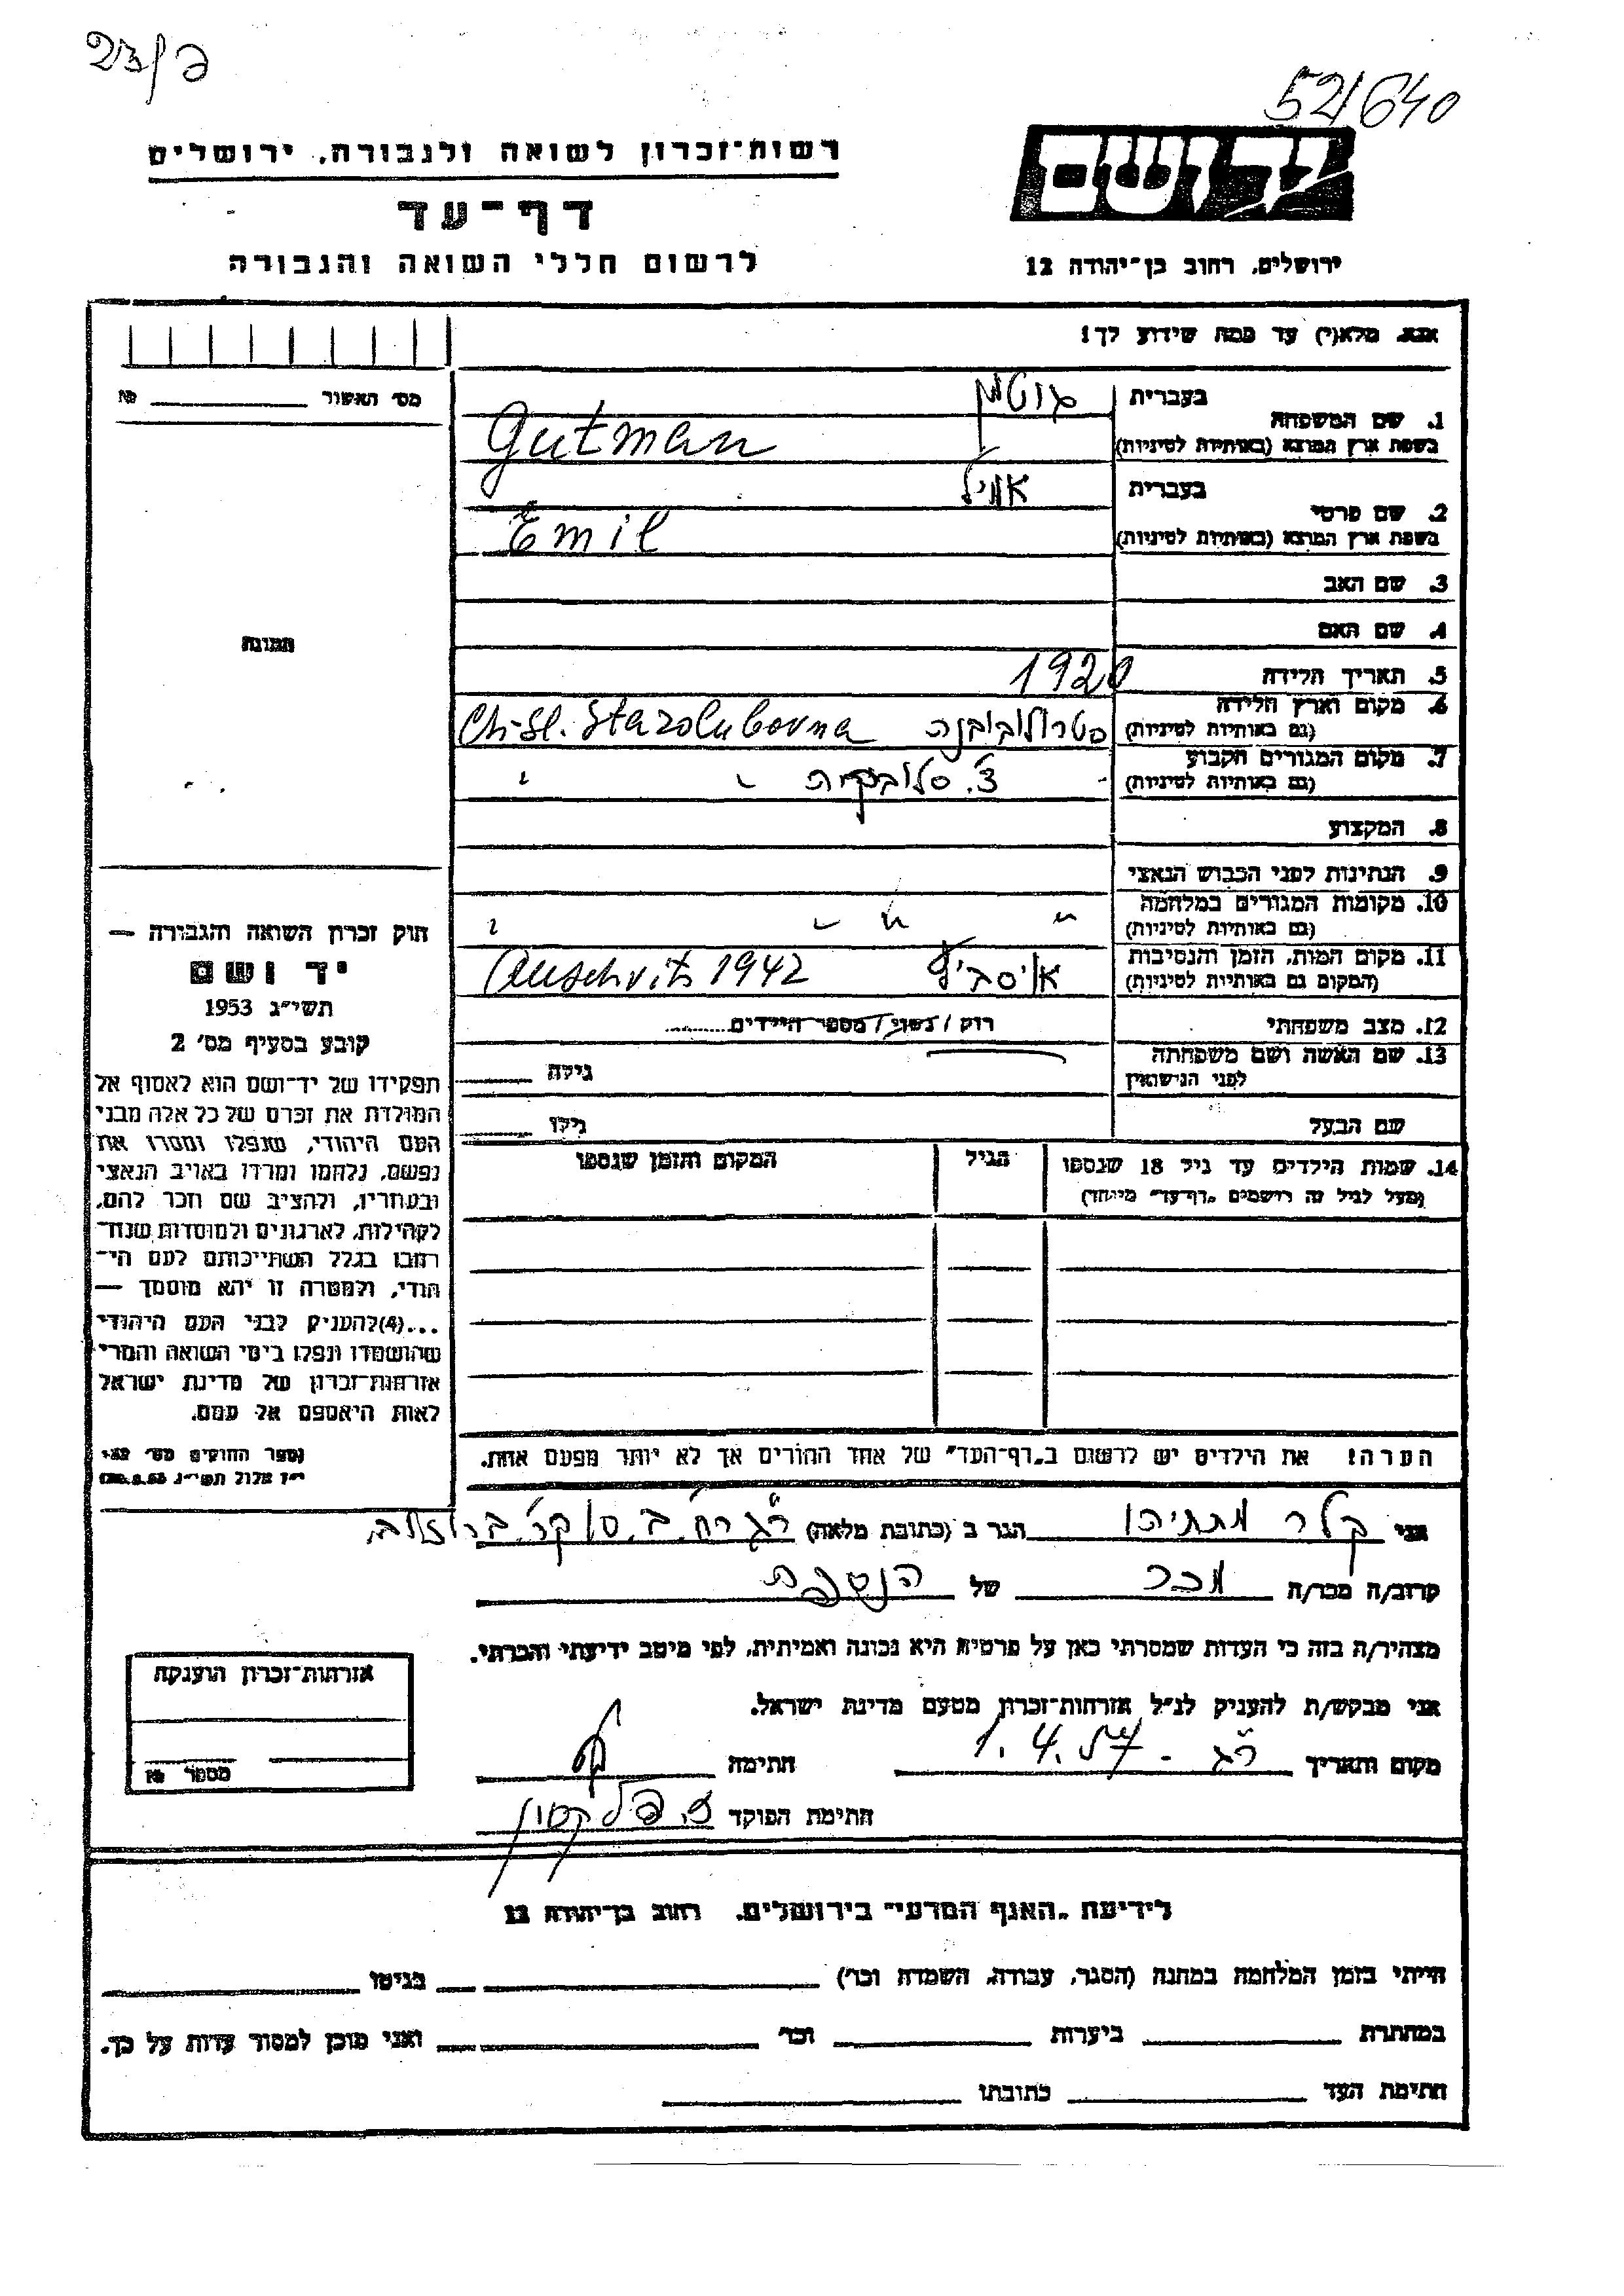 52/640
יד ושם
ירושלים, רחוב בן־יהודה 12
רשות־זכרון לשואה ולגבורה, ירושלים
דף־עד
לרשום חללי השואה והגבורה
אנא, מלא(י) עד כמה שידוע לך!
1. שם המשפחה
בעברית גוטמן
בשפת ארץ המוצא (באותיות לטיניות) Gutman
2. שם פרטי
בעברית אמיל
בשפת ארץ המוצא (באותיות לטיניות) Emil
3. שם האב
4. שם האם
5. תאריך הלידה 1920
6. מקום וארץ הלידה
(גם באותיות לטיניות) סטרולובובנה Ch-Sl. Starolubovna
7. מקום המגורים הקבוע
(גם באותיות לטיניות) צ'. סלובקית
8. המקצוע
9. הנתינות לפני הכבוש הנאצי
10. מקומות המגורים במלחמה
(גם באותיות לטיניות) " " "
11. מקום המות, הזמן והנסיבות
(המקום גם באותיות לטיניות) Auschvits 1942
12. מצב משפחתי רווק / נשוי / מספר הילדים
13. שם האשה ושם משפחתה
לפני הנישואין גילה
שם הבעל גילו
14. שמות הילדים עד גיל 18 שנספו הגיל המקום והזמן שנספו
(מעל לגיל זה רושמים "דף־עד" מיוחד)
הערה: את הילדים יש לרשום ב"דף־העד" של אחד ההורים אך לא יותר מפעם אחת.
מס' האשור №
תמונה
חוק זכרון השואה והגבורה —
יד ושם
תשי"ג 1953
קובע בסעיף מס' 2
תפקידו של יד־ושם הוא לאסוף אל
המולדת את זכרם של כל אלה מבני
העם היהודי, שנפלו ומסרו את
נפשם, נלחמו ומרדו באויב הנאצי
ובעוזריו, ולהציב שם וזכר להם,
לקהילות, לארגונים ולמוסדות שנח־
רבו בגלל השתייכותם לעם הי־
הודי, ולמטרה זו יהא מוסמך —
...(4)להעניק לבני העם היהודי
שהושמדו ונפלו בימי השואה והמרי
אזרחות־זכרון של מדינת ישראל
לאות היאספם אל עמם.
(ספר החוקים מס' 132
י"ז אלול תשי"ג 28.8.53)
אני קלר מתתיהו הגר ב (כתובת מלאה) ר"ג רח'
קרוב/ה מכר/ה מכר של הנספה
מצהיר/ה בזה כי העדות שמסרתי כאן על פרטיה היא נכונה ואמיתית, לפי מיטב ידיעתי והכרתי.
אני מבקש/ת להעניק לנ"ל אזרחות־זכרון מטעם מדינת ישראל.
מקום ותאריך ר"ג - 1.4.57 חתימה
חתימת הפוקד
אזרחות־זכרון הוענקה
מספר №
לידיעת "האגף המדעי" בירושלים, רחוב בן־יהודה 12
הייתי בזמן המלחמה במחנה (הסגר, עבודה, השמדה וכו') בגיטו
במחתרת ביערות וכו' ואני מוכן למסור עדות על כך.
חתימת העד כתובתו